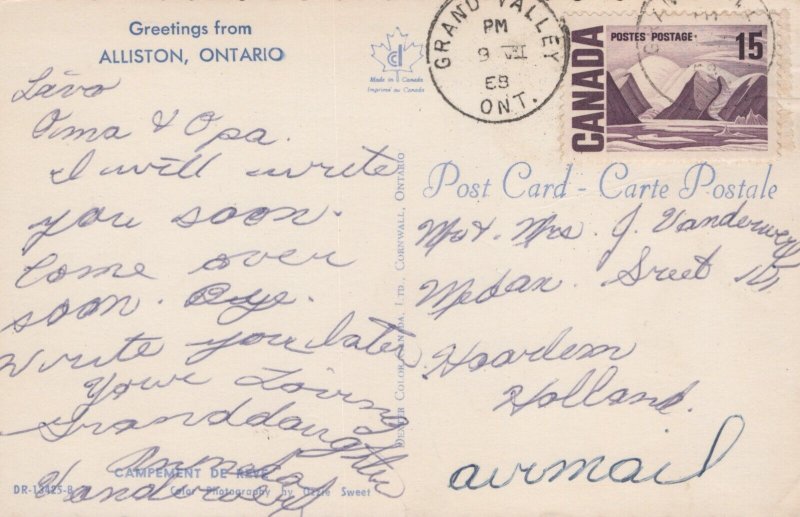 Greetings from
ALLISTON, ONTARIO
Oma & Opa.
I will write
you soon.
Come over
soon. Bye.
Write you later
Your Loving
Granddaughter
Pamela
Vanderwerf
CAMPEMENT DE REVE
DR-18425-B Color Photography by Ozzie Sweet
Made in Canada
Imprimé au Canada
DEXTER COLOR CANADA, LTD. CORNWALL, ONTARIO
GRAND VALLEY
PM
9 VII
68
ONT.
POSTES POSTAGE 15
CANADA
Post Card - Carte Postale
Mr. & Mrs. J. Vanderwerf
Medan. Sreet
Haarlem
Holland.
airmail